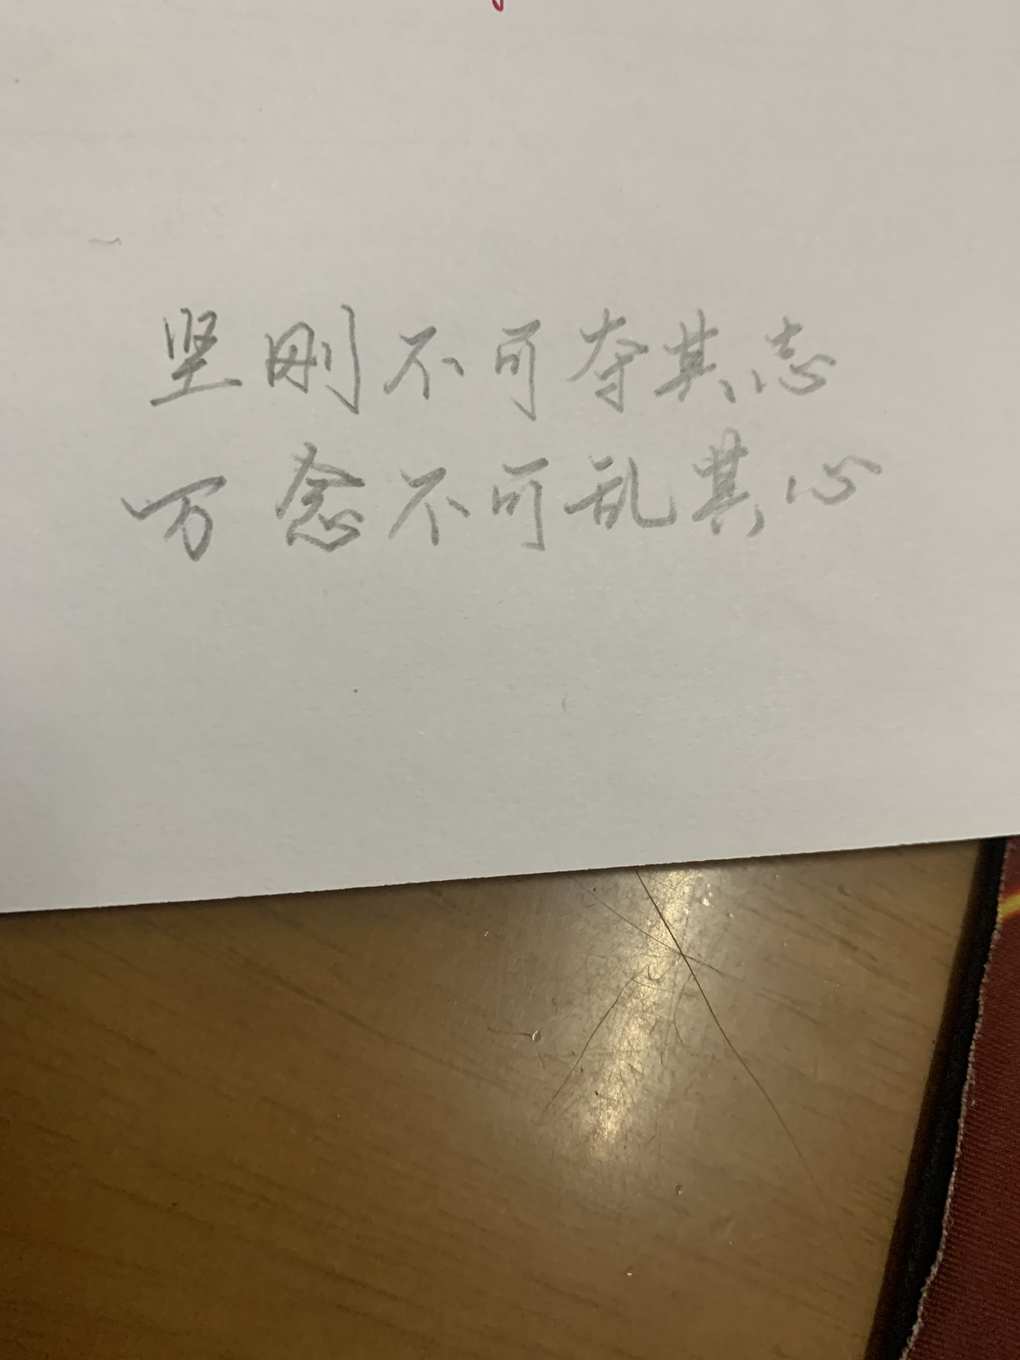 坚刚不可夺其志
万念不可乱其心